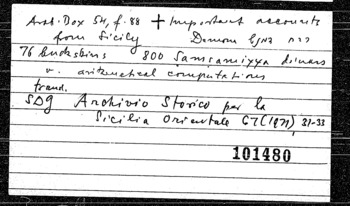 Arab. Box 54, f. 88 + Important accounts
from Sicily
76 buckskins 800 dinars
v. arithmetical computations
SDG Archivio Storico per la
Sicilia Orientale 67 (1971), 21-33
101480